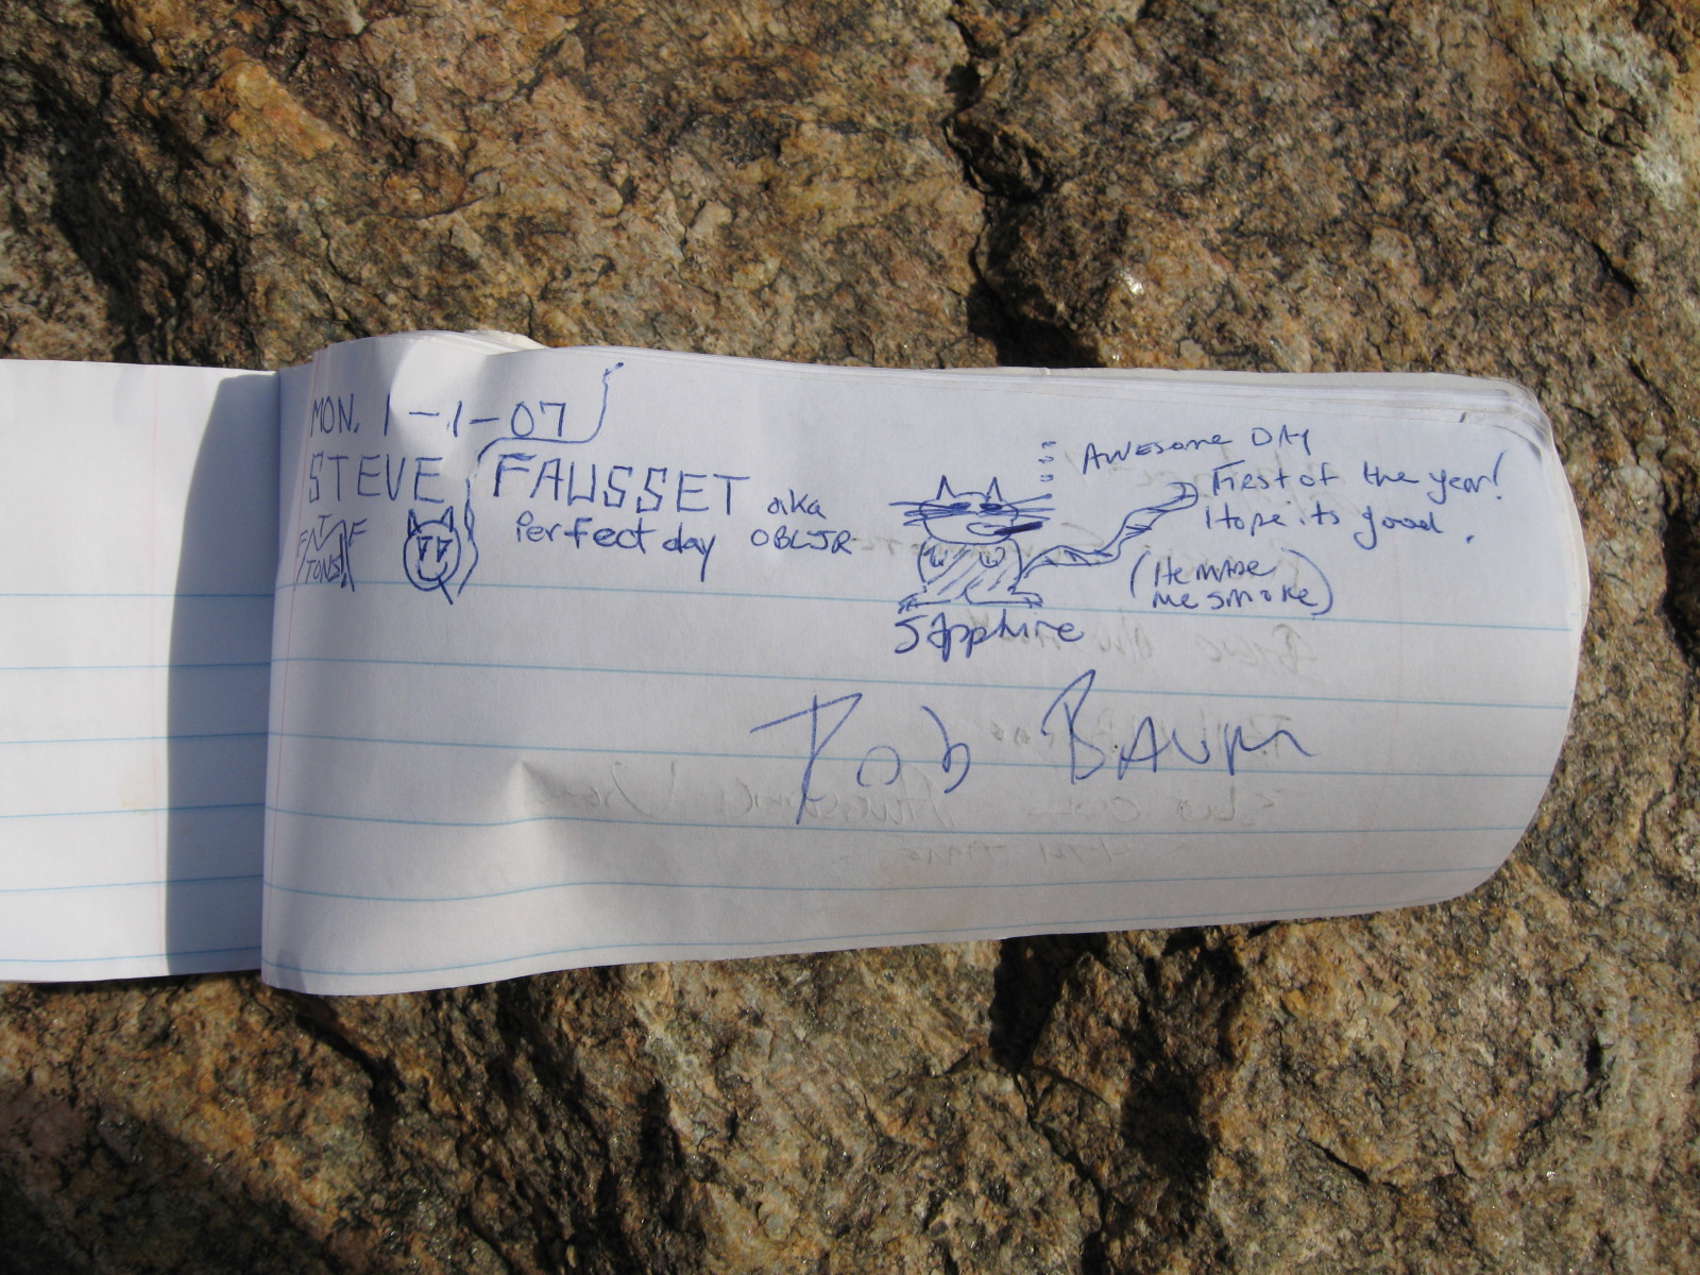 MON. 1-1-07
STEVE FAUSSET aka
Perfect day OBLJR
F T F
TONS!
AWESOME DAY
First of the year!
Hope its good.
(He made
me smoke)
Sapphire
Rob BAUM